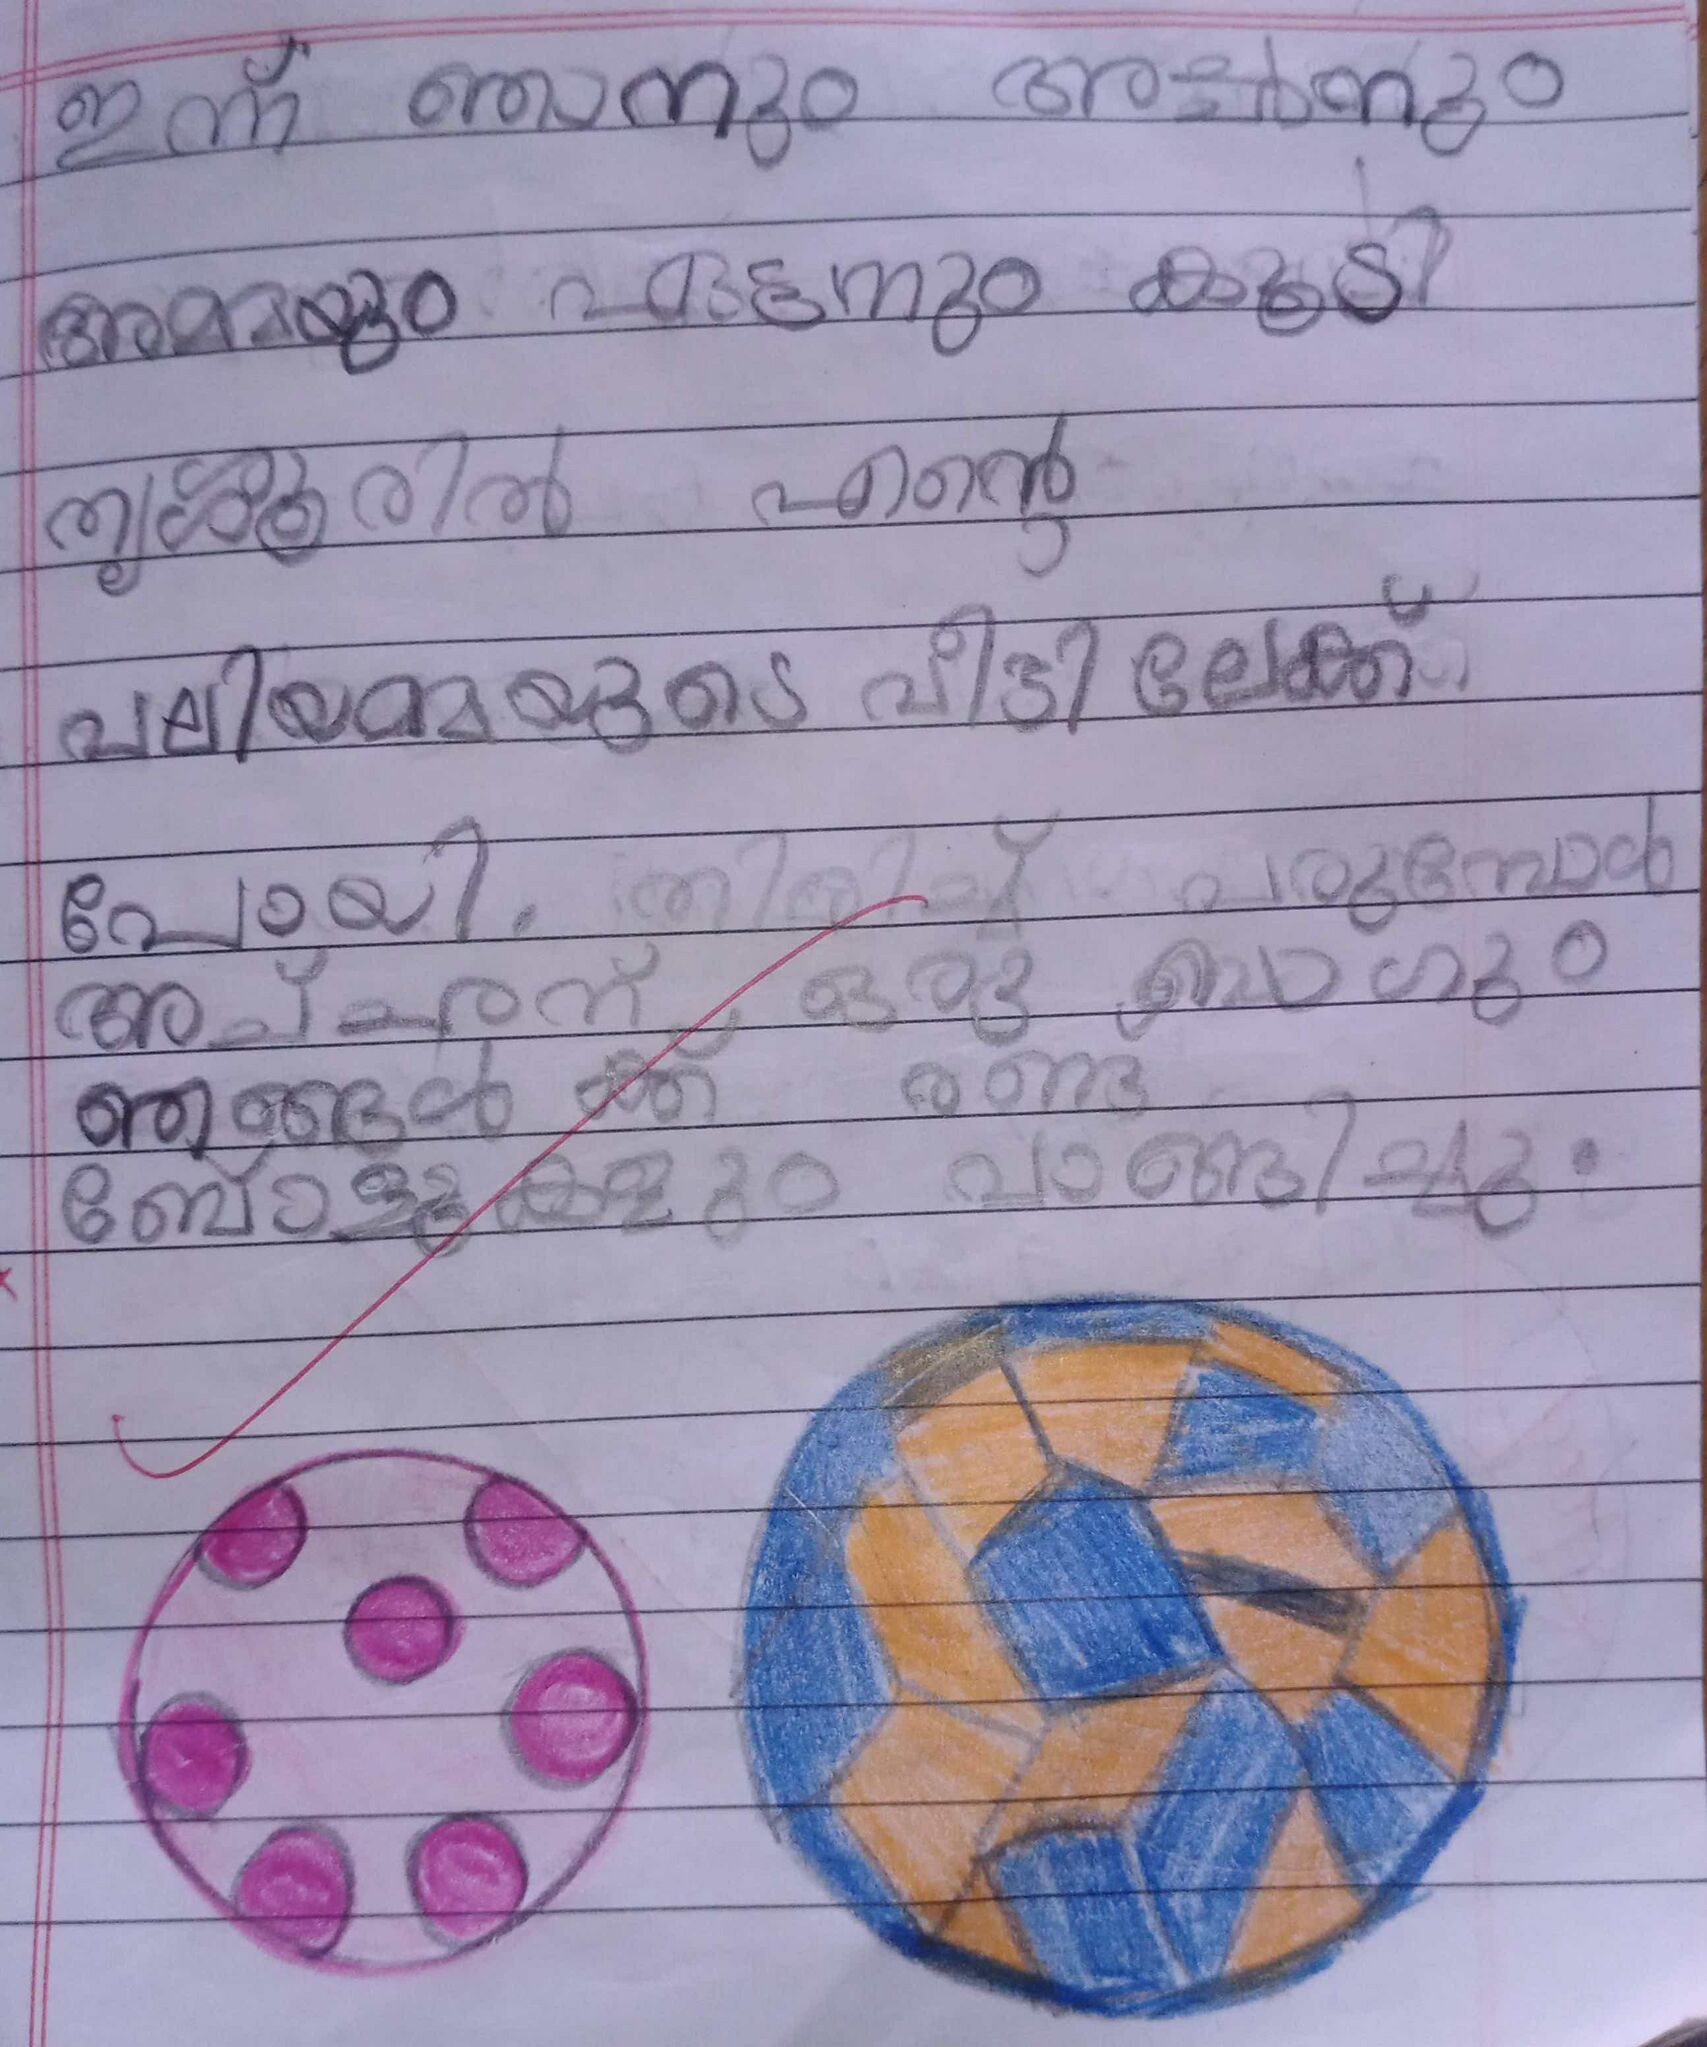 ഇന്ന് ഞാനും അച്ഛനും
അമ്മയും ഏട്ടനും കൂടി
തൃശ്ശൂരിൽ എന്റെ
വലിയമ്മയുടെ വീട്ടിലേക്ക്
പോയി. തിരിച്ച് വരുമ്പോൾ
അച്ഛന് ഒരു ബാഗും
ഞങ്ങൾക്ക് രണ്ട്
ബോളുകളും വാങ്ങിച്ചു.